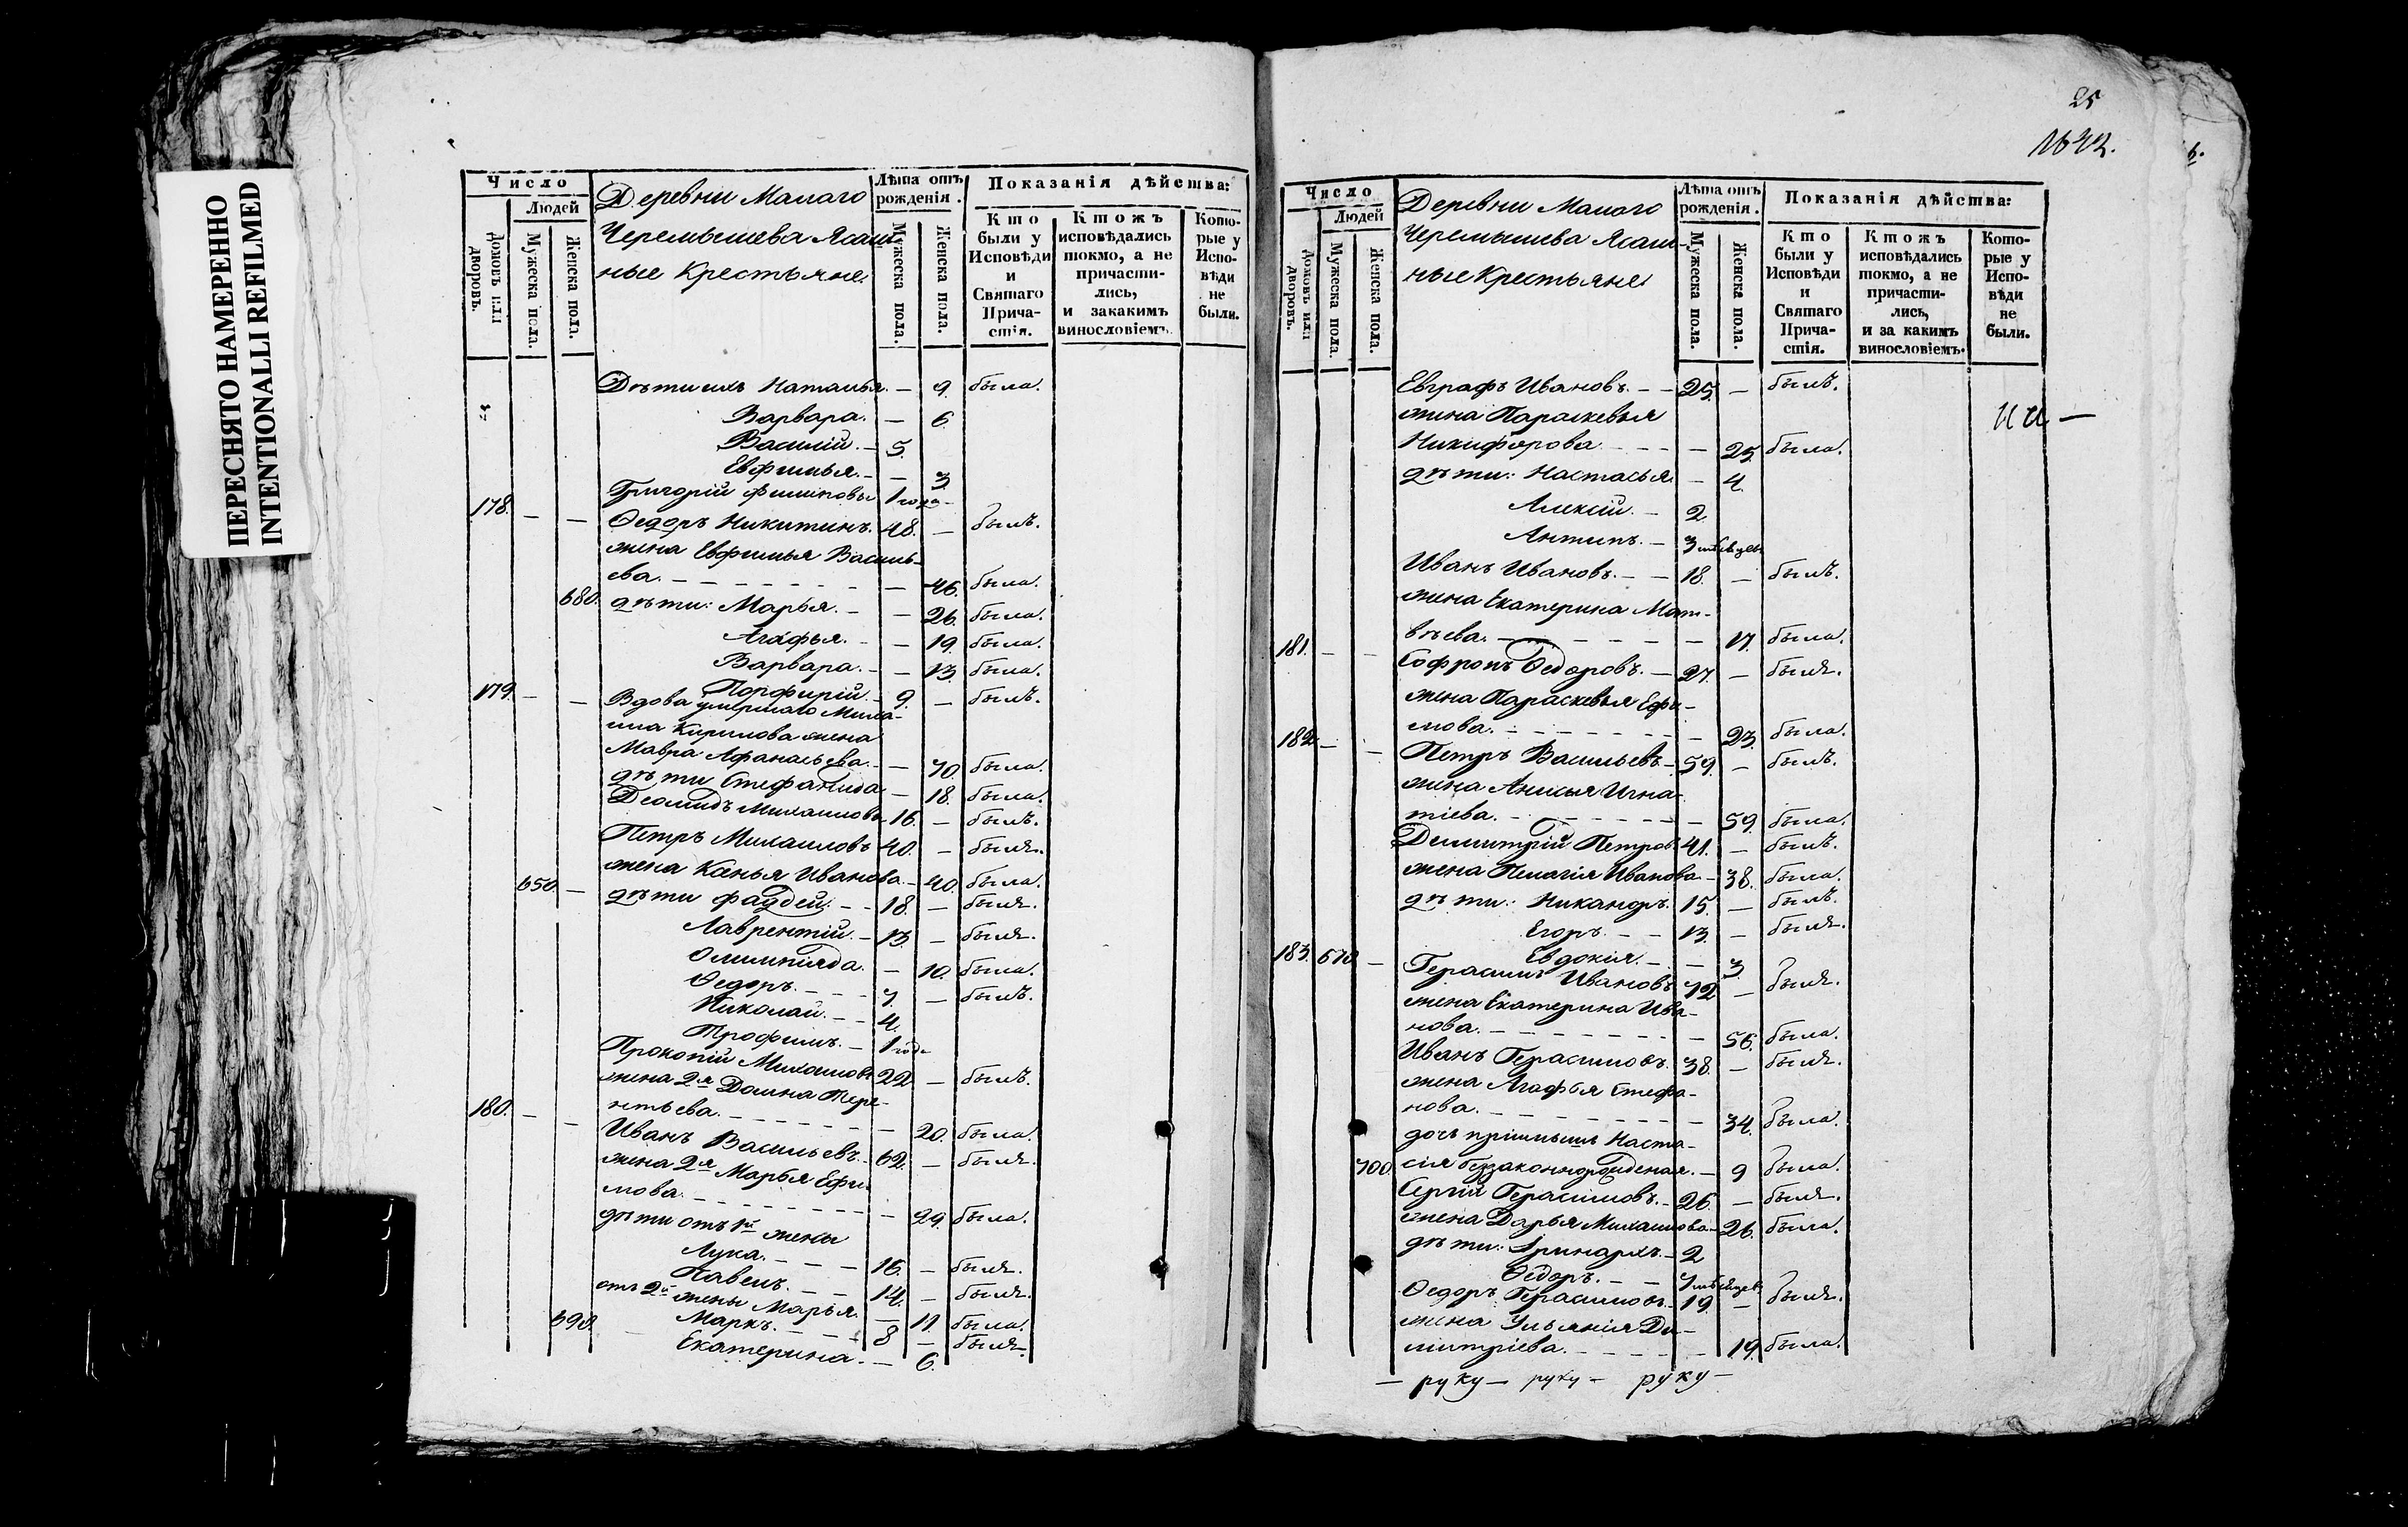 ПЕРЕСНЯТО НАМЕРЕННО
INTENTIONALLI REFILMED
Число
Людей
Домовъ или дворовъ.
Мужеска пола.
Женска пола.
Деревни Малаго
Черемышева Ясаш-
ные Крестьяне.
Лѣта отъ рожденія.
Мужеска пола.
Женска пола.
Показанія дѣйства:
Кто были у Исповѣди и Святаго Прича-стія.
Ктожъ исповѣдались токмо, а не причасти-лись, и закакимъ винословіемъ.
Кото-рые у Испо-вѣди не были.
Дѣти ихъ Наталья. — 9. была.
Варвара. — 6.
Василій. — 5.
Евфимья. — 3.
Григорій Филиповъ 1 года
178. — — Ѳедоръ Никитинъ. 48. — былъ.
жена Евфимья Василь-
ева. — 46. была.
680. дѣти: Марья. — 26. была.
Агафья. — 19. была.
Варвара. — 13. была.
Порфирій. — 9. — былъ.
179. — — Вдова умершаго Миха-
ила Кирилова жена
Мавра Афанасьева. — 70. была.
дѣти Стефанида — 18. была.
Деомидъ Михаиловъ 16. — былъ.
Петръ Михаиловъ 40. — былъ.
жена Ксенья Иванова. — 40. была.
650. — дѣти Фаддей. — 18. — былъ.
Лаврентій. — 13. — былъ.
Олимпіяда. — 10. была.
Ѳедоръ. — 7. — былъ.
Николай. — 4.
Трофимъ. — 1 года
Прокопій Михаиловъ 22. — былъ.
жена 2я Домна Тере-
нтьева. — 20. была.
180. — — Иванъ Васильевъ. 62. — былъ.
жена 2я Марья Ефи-
мова. — 29. была.
дѣти отъ 1й жены
Лука. — 16. — былъ.
Павелъ. — 14. — былъ.
отъ 2й жены Марья. — 11. была.
690. Маркъ. — 8 — былъ.
Екатерина. — 6.
25
1642.
Число
Людей
Домовъ или дворовъ.
Мужеска пола.
Женска пола.
Деревни Малаго
Черемышева Ясаш-
ные Крестьяне
Лѣта отъ рожденія.
Мужеска пола.
Женска пола.
Показанія дѣйства:
Кто были у Исповѣди и Святаго Прича-стія.
Ктожъ исповѣдались токмо, а не причасти-лись, и за какимъ винословіемъ.
Кото-рые у Испо-вѣди не были.
Евграфъ Ивановъ. — 25. — былъ.
жена Параскевья
Никифорова — 25. была.
дѣти: Настасья. — 4.
Алексій. — 2.
Антипъ. — 3 мѣсяцевъ
Иванъ Ивановъ. — 18. — былъ.
жена Екатерина Мат-
вѣева. — 17. была.
181. — — Софронъ Ѳедоровъ. — 27. — былъ.
жена Параскевья Ефи-
мова. — 23. была.
182. — — Петръ Васильевъ. 59. — былъ.
жена Анисья Игна-
тіева. — 59. была.
Димитрій Петровъ 41. — былъ.
жена Пелагія Иванова — 38. была.
дѣти: Никаноръ. 15. — былъ.
Егоръ. — 13. — былъ.
Евдокія. — 3.
183. 670 — Герасимъ Ивановъ 72 — былъ.
жена Екатерина Ива-
нова. — 56. была.
Иванъ Герасимовъ. 38. — былъ.
жена Агафья Стефа-
нова. — 34. была.
дочь пріимышъ Наста-
700. сія беззаконнорожденая. — 9 была.
Сергій Герасимовъ. 26. — былъ.
жена Дарья Михаилова — 26. была.
дѣти: Іринархъ. — 2
Ѳедоръ. — 7 мѣсяцев
Ѳедоръ Герасимовъ. 19. — былъ.
жена Ульянія Ди-
митріева. — 19. была.
— руку — руку — руку —